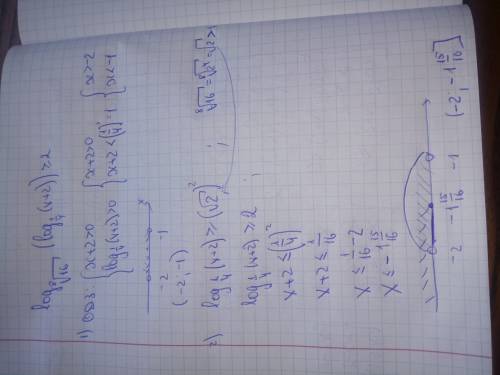 log_{\sqrt[8]{16}} (log_{1/4}(x+2)) ≥ 2
1) ОДЗ: { x+2>0 { x+2>0 { x>-2
{ log_{1/4}(x+2)>0 { x+2<(1/4)^0=1 { x<-1
x
-2 -1
(-2; -1)
2) log_{1/4}(x+2) ≥ (√2)^2 ; \sqrt[8]{16} = \sqrt[8]{2^4} = √2 > 1
log_{1/4}(x+2) ≥ 2 ;
x+2 ≤ (1/4)^2
x+2 ≤ 1/16
x ≤ 1/16 - 2
x ≤ -1 15/16
-2 -1 15/16 -1 (-2; -1 15/16]